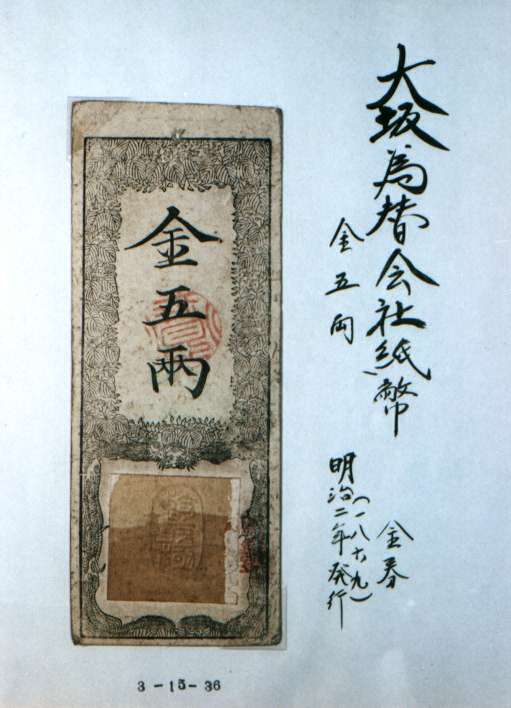 大坂為替会社紙幣
金五両
金券
明治二年(一八六九)発行
金五兩
3-15-36